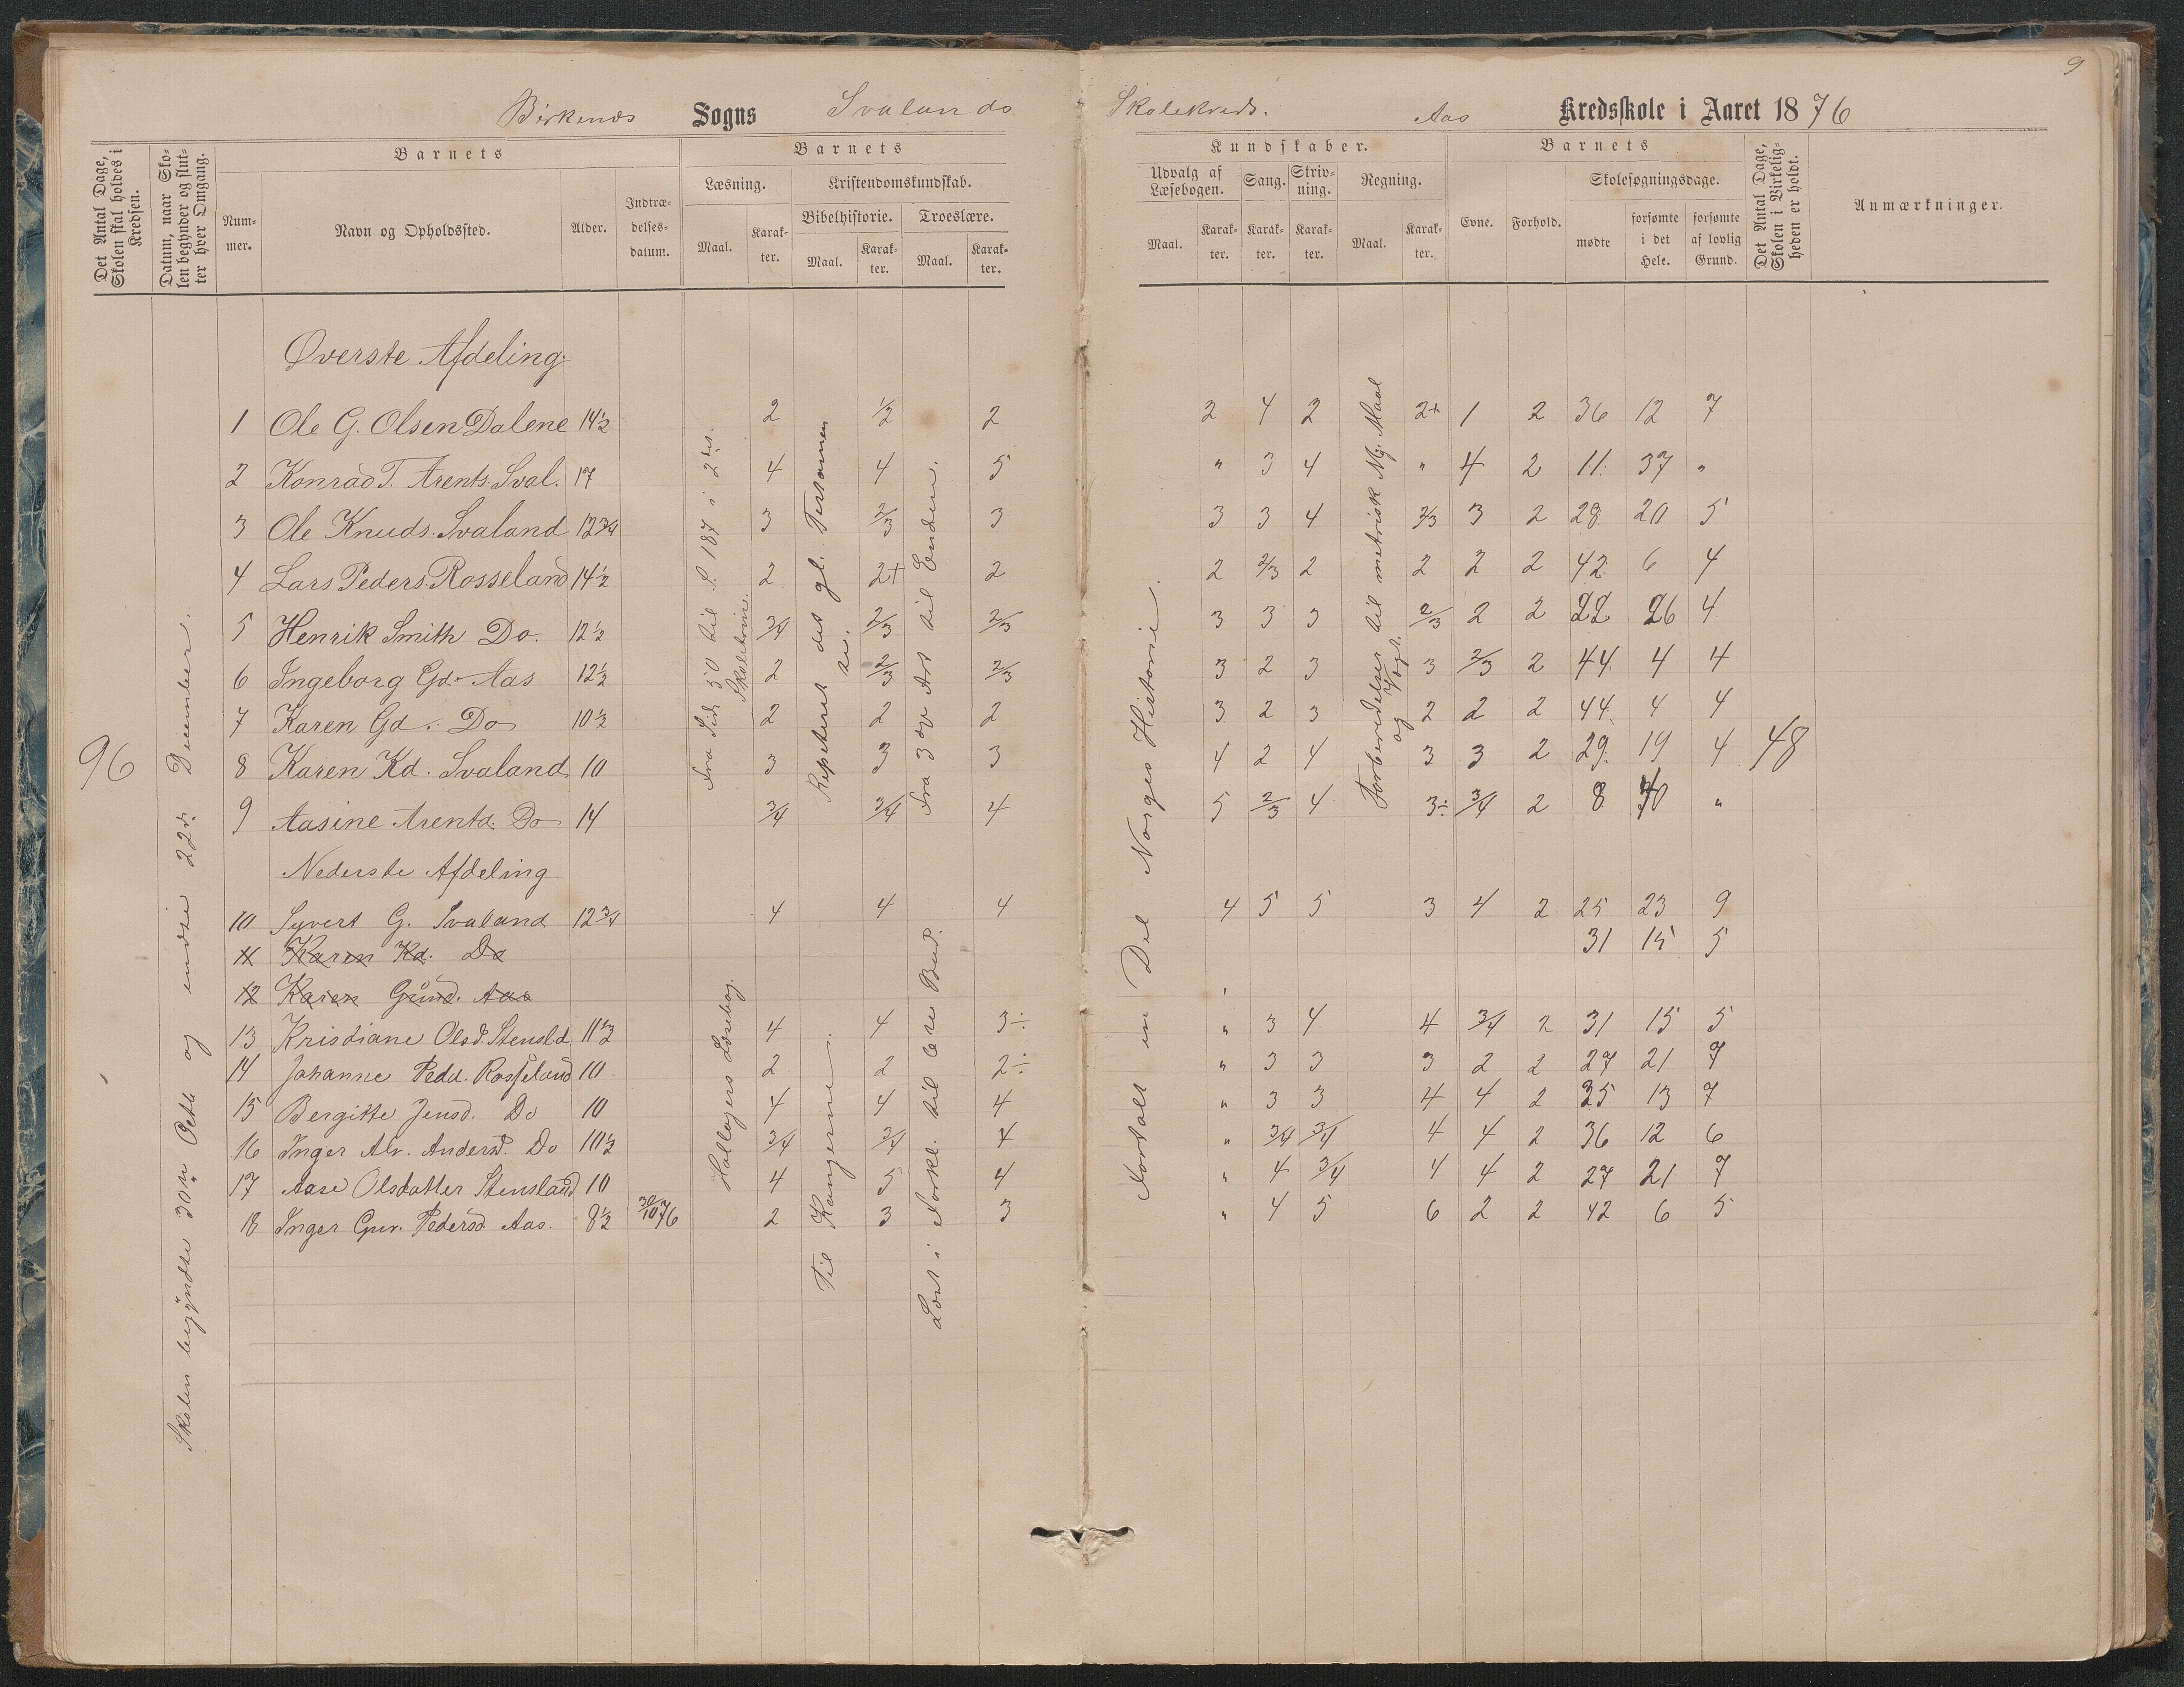 9
Birkenes Sogns Svalands Skolekreds. Aas Kredsskole i Aaret 1876
Det Antal Dage, Skolen skal holdes i Kredsen.
Datum, naar Skolen begynder og slutter hver Omgang.
Barnets
Nummer.
Navn og Opholdssted.
Alder.
Indtrædelsesdatum.
Barnets
Læsning.
Maal.
Karakter.
Kristendomskundskab.
Bibelhistorie.
Maal.
Karakter.
Troeslære.
Maal.
Karakter.
Kundskaber.
Udvalg af Læsebogen.
Maal.
Karakter.
Sang.
Karakter.
Skrivning.
Karakter.
Regning.
Maal.
Karakter.
Barnets
Evne.
Forhold.
Skolesøgningsdage.
mødte
forsømte i det Hele.
forsømte af lovlig Grund.
Det Antal Dage, Skolen i Virkeligheden er holdt.
Anmærkninger.
96
Skolen begyndte 30te Octb og endte 22de December.
Øverste Afdeling
1 Ole G. Olsen Dalene 14½ 2 ½ 2 2 4 2 2+ 1 2 36 12 7
2 Konrad T. Arents. Sval. 17 4 4 5 " 3 4 " 4 2 11 37 "
3 Ole Knuds. Svaland 12¾ 3 2/3 3 3 3 4 2/3 3 2 28 20 5
4 Lars Peders. Rosseland 14½ 2 2+ 2 2 2/3 2 2 2 2 42 6 4
5 Henrik Smith Do. 12½ 3/4 2/3 2/3 3 3 3 2/3 2 2 22 26 4
6 Ingeborg Gd. Aas 12½ 2 2/3 2/3 3 2 3 3 2/3 2 44 4 4
7 Karen Gd. Do 10½ 2 2 2 3 2 3 2 2 2 44 4 4
8 Karen Kd. Svaland 10 3 3 3 4 2 4 3 3 2 29 19 4 48
9 Aasine Arentd. Do 14 3/4 3/4 4 5 2/3 4 3÷ 3/4 2 8 40 "
Fra Side 50 til S. 187 i 2det Skoletrin.
Repeteret det gl. Testamente.
Fra 3die Art til Enden.
Forberedelser til metrisk Mj. Maal og Vægt.
Fortalt en Del Norges Historie.
Nederste Afdeling
10 Syvert G. Svaland 12¾ 4 4 4 4 5 5 3 4 2 25 23 9
11 Karen Kd. Do 31 15 5
12 Karen Gund. Aas
13 Kristiane Olsd. Stensld 11½ 4 4 3÷ " 3 4 4 3/4 2 31 15 5
14 Johanne Pedd. Rosseland 10 2 2 2÷ " 3 3 3 2 2 27 21 7
15 Bergitte Jensd. Do 10 4 4 4 " 3 3 4 4 2 35 13 7
16 Inger Alv. Andersd. Do 10½ 3/4 3/4 4 " 3/4 3/4 4 4 2 36 12 6
17 Aase Olsdatter Stensland 10 4 5 4 " 4 3/4 4 4 2 27 21 7
18 Inger Gur. Pedersd. Aas. 8½ 30/10 76 2 3 3 " 4 5 6 2 2 42 6 5
Læsebog.
Til Kongerne.
Læst i Forkl. til 6te Bud.